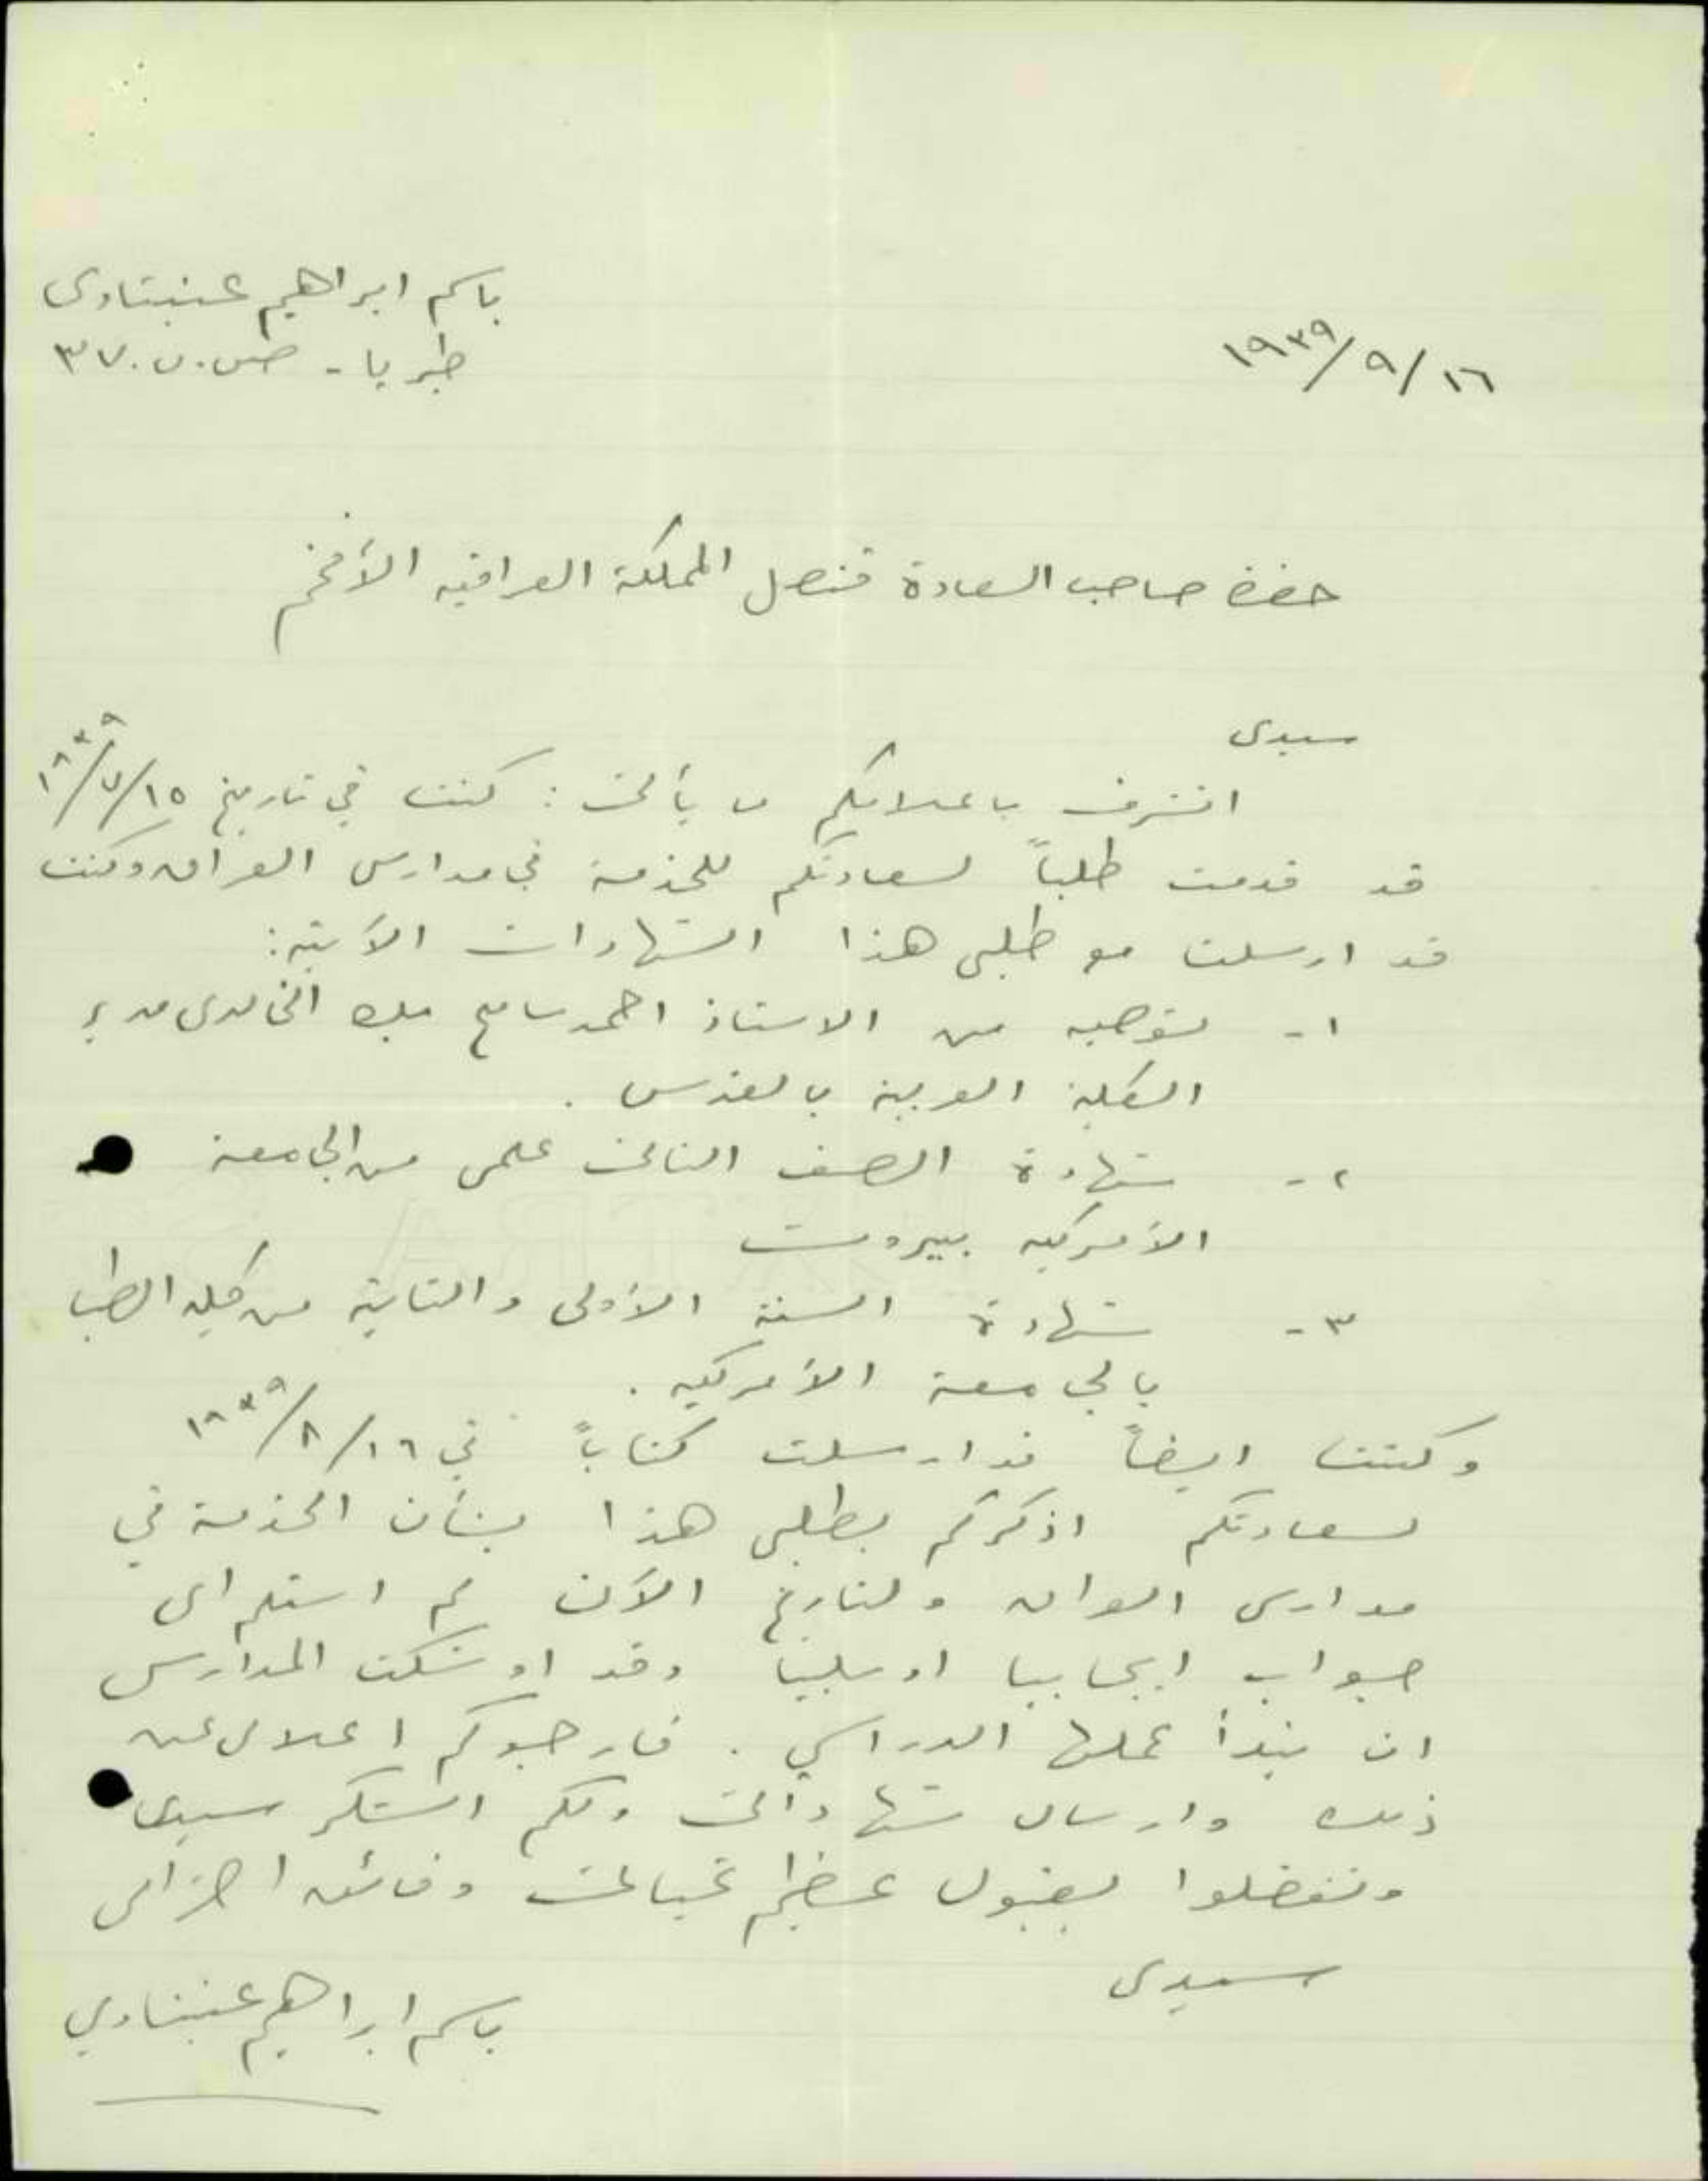 باسم ابراهيم عنبتاوى
طبريا - ص.ب. ٣٧
١٩٣٩/٩/١٦
حضرة صاحب السعادة قنصل المملكة العراقيه الأفخم
سيدى
اتشرف باعلامكم ما يأتى : كنت في تاريخ ١٩٣٩/٧/١٥
قد قدمت طلباً لسعادتكم للخدمة في مدارس العراق وكنت
قد ارسلت مع طلبى هذا الشهادات الآتية :
١- توصيه من الاستاذ احمد سامح بك الخالدى مدير
الكلية العربية بالقدس .
٢- شهادة الصف الثانى علمى من الجامعة
الأمركيه ببيروت
٣- شهادة السنة الأولى والثانية من كلية الطب
بالجامعة الأمركيه .
وكنت ايضاً قد ارسلت كتاباً في ١٩٣٩/٨/١٦
لسعادتكم اذكركم بطلبى هذا بشأن الخدمة في
مدارس العراق ولتاريخ الآن لم استلم اى
جواب ايجابيا او سلبيا وقد اوشكت المدارس
ان تبدأ عملها الدراسي . فارجوكم اعلامى عن
ذلك وارسال شهاداتى ولكم الشكر سيدى
وتفضلوا بقبول عظيم تحياتى وفائق احترامى
سيدى
باسم ابراهيم عنبتاوي